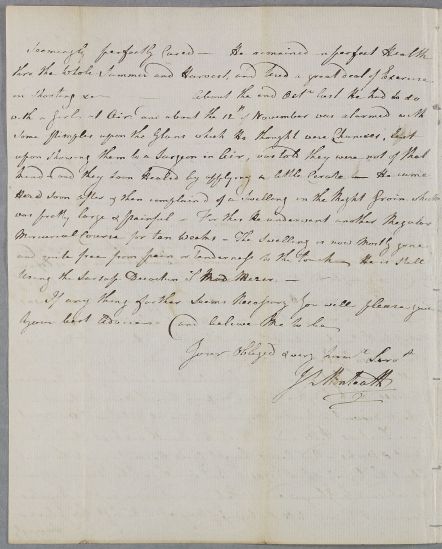 Seemingly perfectly Cured — He remained in perfect Health
thro the whole Summer and Harvest, and used a great deal of Exercise
in Shooting &c — About the end Octr last He had to do
with a Girl, at Air, and about the 12th of November was alarmed with
Some Pimples upon the Glans which He thought were Chancres, but
upon Showing them to a Surgeon in Air, was told they were not of that
kind & and they soon Healed by applying a little Cerate — He came
Here soon after & then complained of a Swelling in the Right Groin which
was pretty large & painful — For this He underwent another Regular
Mercurial Course for ten Weeks — The Swelling is now mostly gone
and quite free from pain or tenderness to the touch He is still
Using the Decoction
If any thing further Seems Necessary You will please give
Your best Advice — and believe Me to be
Your Obliged & very humle Servt
Js Monteath